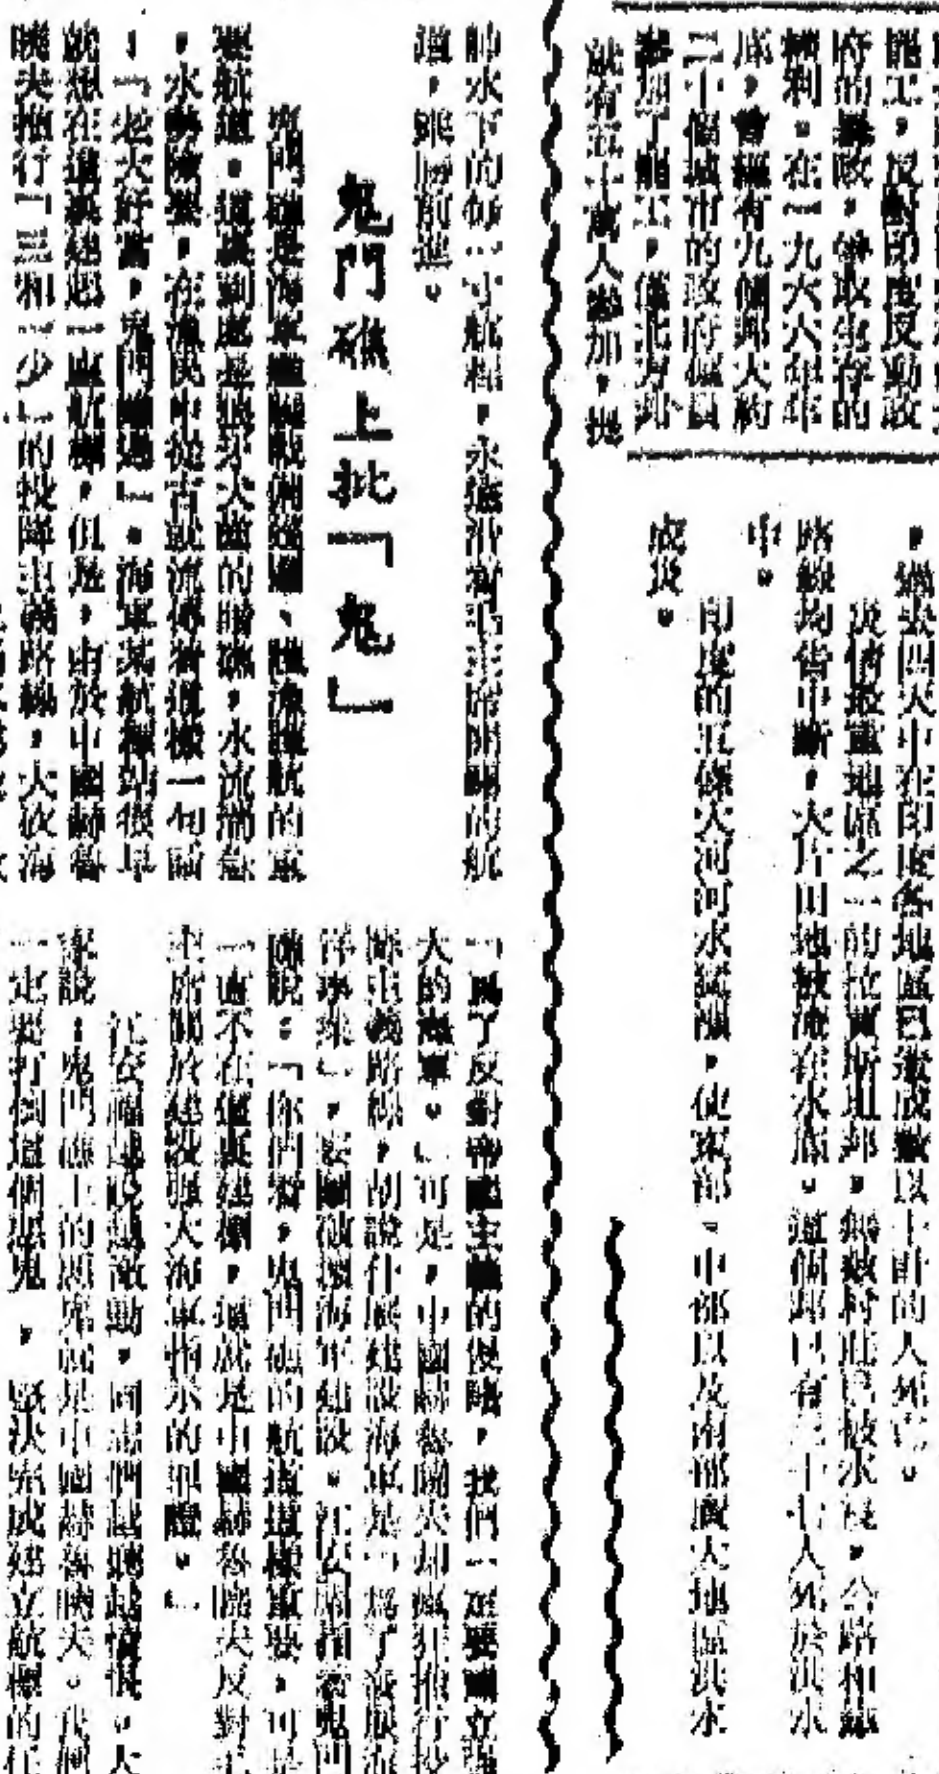 罷工，反對印度反動政
府的暴政，爭取生存的
權利。在一九六六年年
底，曾經有九個邦大約
二十個城市的政府僱員
參加了罷工，僅北方邦
就有五十萬人參加，
，過去四天中在印度各地區已造成數以十計的人死亡。
災情最重地區之一的拉賈斯坦邦，無數村莊已被水浸，公路和鐵
路線均告中斷，大片田地被淹在水底。這個邦已有三十七人死於洪水
中。
印度的五條大河河水猛漲，使東部、中部以及南部廣大地區洪水
成災。
帥水下的每一寸航程，永遠沿着毛主席開闢的航
道，乘勝前進。
鬼門礁上批「鬼」
鬼門礁是海軍艦艇
要航道。這裏到處是狼牙犬齒的暗礁，水流湍急
，水勢險要，在漁民中從古就流傳着這樣一句話
：「老大好當，鬼門難過」。海軍某航標站很早
就想在這裏建起一座航標，但是，由於中國赫魯
曉夫推行「三和一少」的投降主義路線，大砍海
「爲了反對帝國主義的侵略，我們一定要建立強
大的海軍。」可是，中國赫魯曉夫却瘋狂推行投
降主義路線，胡說什麽建設海軍是「爲了發展海
洋事業」，妄圖破壞海軍建設。江仫福指着鬼門
礁說：「你們看，鬼門礁的航道這樣重要，可是
一直不在這裏建標，這就是中國赫魯曉夫反對毛
主席關於建設強大海軍指示的罪證。」
同志們越聽越憤恨。大
家說：鬼門礁上的惡鬼就是中國赫魯曉夫。我們
一定要打倒這個惡鬼，堅決完成建立航標的任